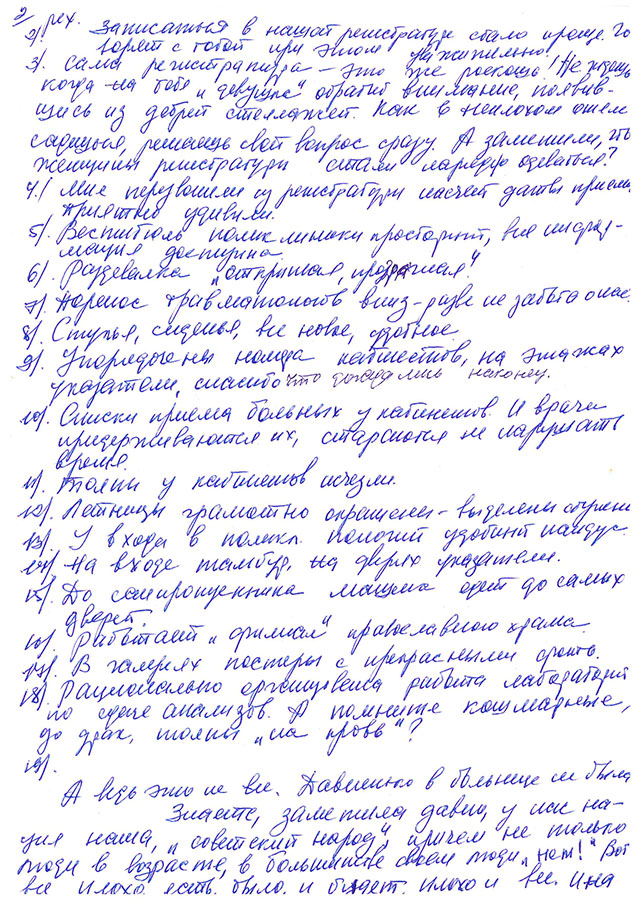 2
рех.
2). Записаться в нашей регистратуре стало проще. Го
ворят с тобой при этом уважительно!
3). Сама регистратура – это же роскошь! Не ждешь,
когда на тебя „девушка" обратит внимание, появив-
шись из дебрей стеллажей. Как в неплохом отеле
садишься, решаешь свой вопрос сразу. А заметили, что
женщины регистратуры стали нарядно одеваться?
4.) Мне перезвонили из регистратуры насчет даты приема.
Приятно удивили.
5). Вестибюль поликлиники просторный, вся инфор-
мация доступна.
6). Раздевалка „открытая, прозрачная".
7). Перенос травматологов вниз – разве не забота о нас.
8). Стулья, сиденья, все новое, удобное.
9). Упорядочены номера кабинетов, на этажах
указатели, спасибо что догадались наконец.
10). Списки приема больных у кабинетов. И врачи
придерживаются их, стараются не нарушать
время.
11). Толпы у кабинетов исчезли.
12). Лестницы грамотно окрашены – выделены ступени
13). У входа в поликл. пологий удобный пандус.
14). На входе тамбур. на дверях указатели.
15). До санпропускника машина едет до самых
дверей.
16). Работает „филиал" православного храма.
17). В галереях постеры с прекрасными фото.
18). Рационально организована работа лаборатории
по сдаче анализов. А помните кошмарные,
до драк, толпы „на кровь"?
19).
А ведь это не все. Давненько в больнице не была
Знаете, заметила давно, у нас на-
ция наша, „советский народ", причем не только
люди в возрасте, в большинстве своем люди „нет!" Вот
все плохо есть. было. и будет. плохо и все. И на